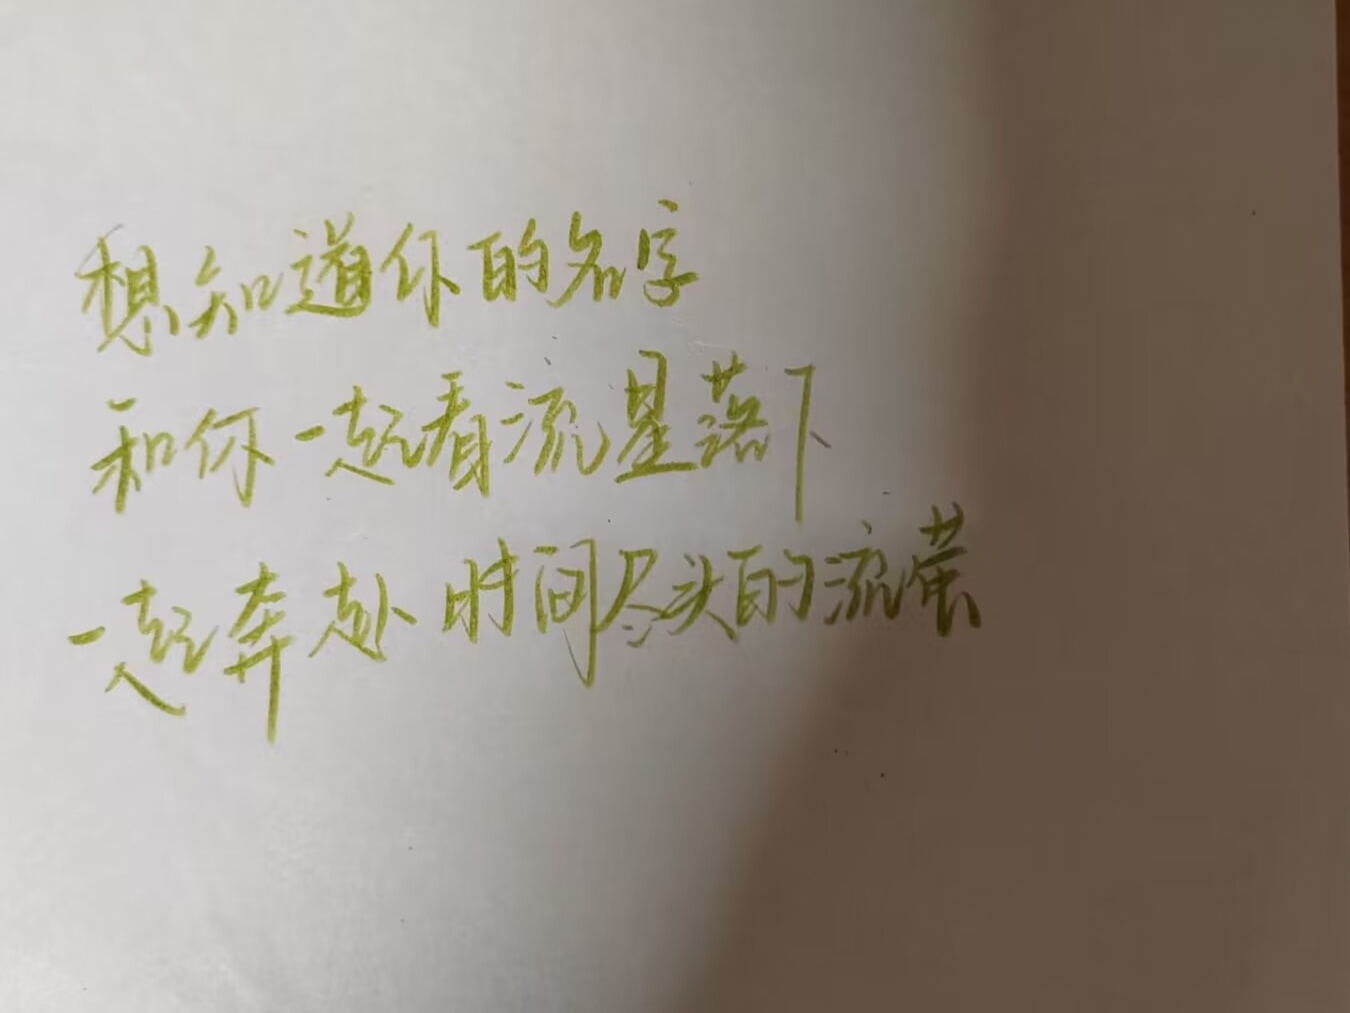 想知道你的名字
和你一起看流星落下
一起奔赴时间尽头的流萤